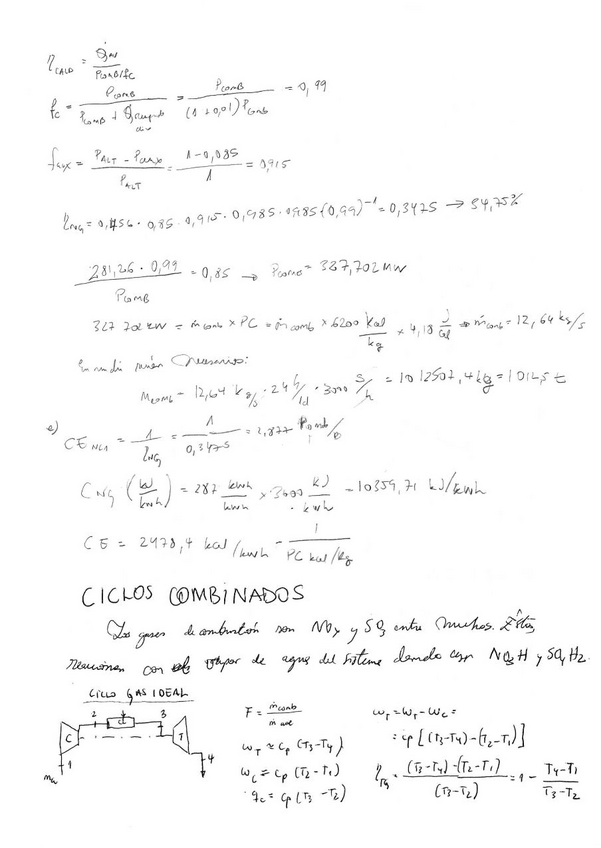 η CALD = Q̇ / PCOMB/fc
fc = PCOMB / PCOMB + = PCOMB / (1+0,01) PCOMB = 0,99
faux = PALT - Paux / PALT = 1-0,085 / 1 = 0,915
ηNG = 0,456 · 0,85 · 0,915 · 0,985 · 0,985 (0,99)⁻¹ = 0,3475 → 34,75%
281,26 · 0,99 / PCOMB = 0,85 → PCOMB = 327,702 MW
327 702 KW = ṁcomb × PC = ṁcomb × 6200 Kcal/kg × 4,18 J/cal → ṁcomb = 12,64 kg/s
En un día serán necesarios:
MCOMB = 12,64 kg/s · 24 h/d · 3600 s/h = 1012507,4 kg = 1012,5 t
e) CE = 1/ηNG = 1/0,3475 = 2,877
CNG (kJ/kwh) = 287 kwh/kwh × 3600 kJ/kwh = 10359,71 kJ/kwh
CE = 2478,4 kcal/kwh · 1 / PC kcal/kg
CICLOS COMBINADOS
Los gases de combustión son NOx y SO2 entre muchos. Éstos
reaccionan con el vapor de agua del sistema dando NO3H y SO4H2.
CICLO GAS IDEAL
F = ṁcomb / ṁaire
wT = wT - wC =
2 3
C T
wT ≈ cp (T3-T4)
= cp [(T3-T4)-(T2-T1)]
1 4
wC = cp (T2-T1)
ηTG = (T3-T4)-(T2-T1) / (T3-T2) = 1 - T4-T1 / T3-T2
qc = cp (T3-T2)